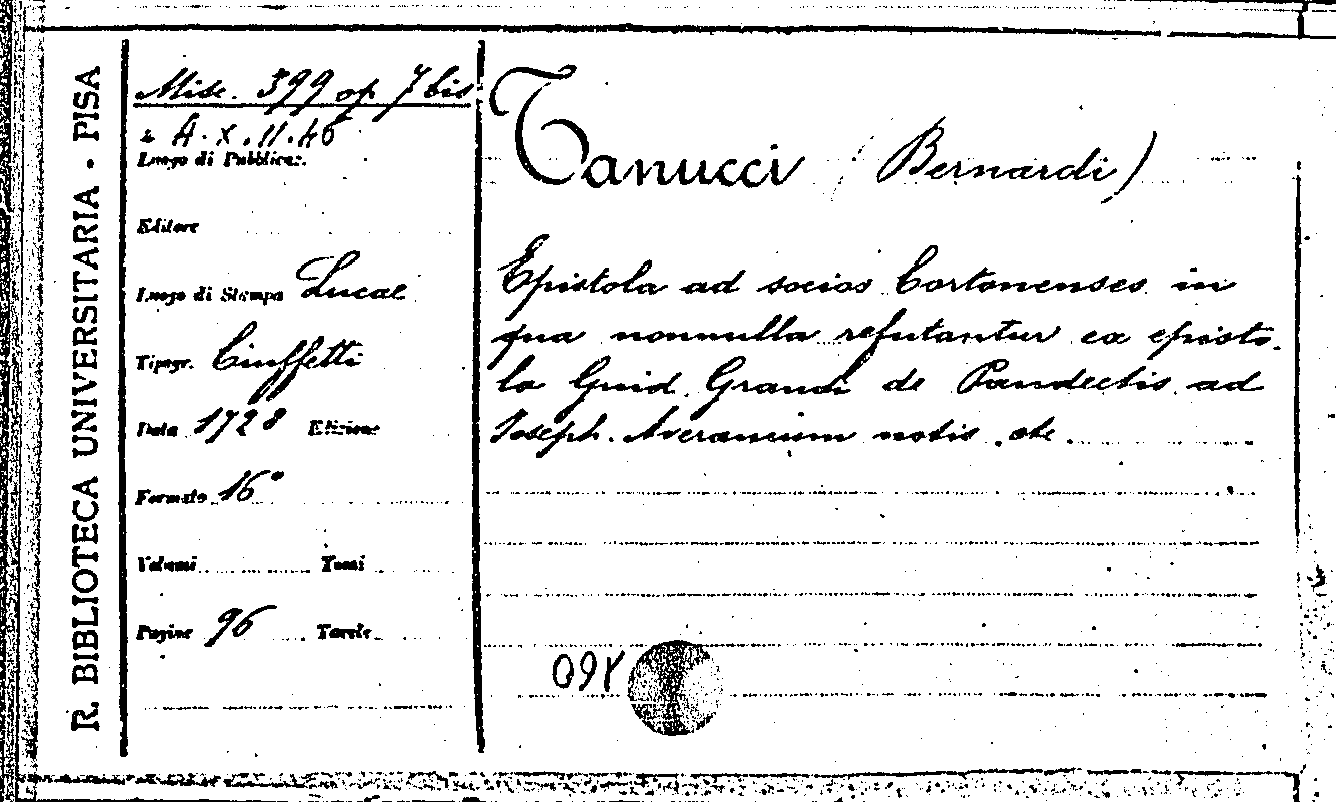 R. BIBLIOTECA UNIVERSITARIA · PISA
Misc. 399 op 7 bis
2 A. X. 11. 46
Luogo di Pubblicaz.
Editore
Luogo di Stampa Lucae
Tipogr. Ciuffetti
Data 1728 Edizione
Formato 16°
Volumi Tomi
Pagine 96 Tavole
Tanucci (Bernardi)
Epistola ad socios Cortonenses in
qua nonnulla refutantur ex episto-
la Guid. Grandi de Pandectis ad
Joseph. Averanium notis etc.